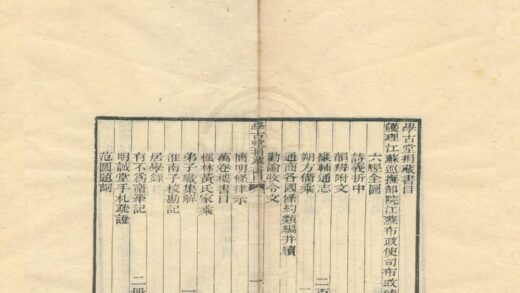 學古堂捐藏書目
護理江蘇巡撫部院江蘇布政使司布政使
六經全圖
詩義折中
韻辨附文
畿輔通志
朔方備乘
通商各國條約類編并續
勸諭牧令文
學古堂捐藏書目
一
簡明條律示
萬卷樓書目
楓林黃氏家乘
弟子職集解
淮南子校勘記
居學錄
有不為齋筆記
明誠堂手札疏證 二冊
范圍題詞